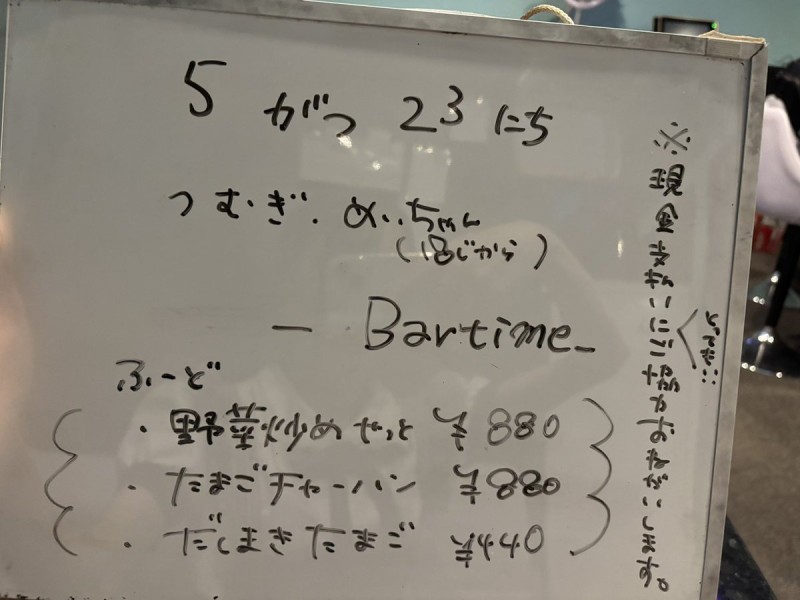 5 がつ 23 にち
つむぎ・めいちゃん
(18じから)
− Bartime −
ふーど
・野菜炒めせっと ¥880
・たまごチャーハン ¥880
・だしまきたまご ¥440
※現金支払いにご協力おねがいします。